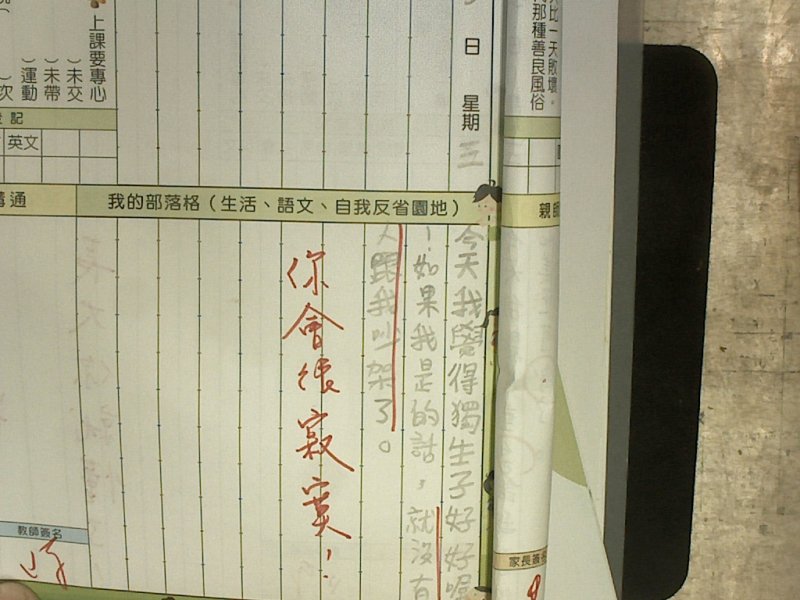 比一天敗壞。
那種善良風俗
日 星期三
上課要專心
）未交
）未帶
）運動
）次
記
英文
通
我的部落格（生活、語文、自我反省園地）
親師
今天我覺得獨生子好好喔
！如果我是的話，就沒有
人跟我吵架了。
你會很寂寞！
教師簽名
家長簽